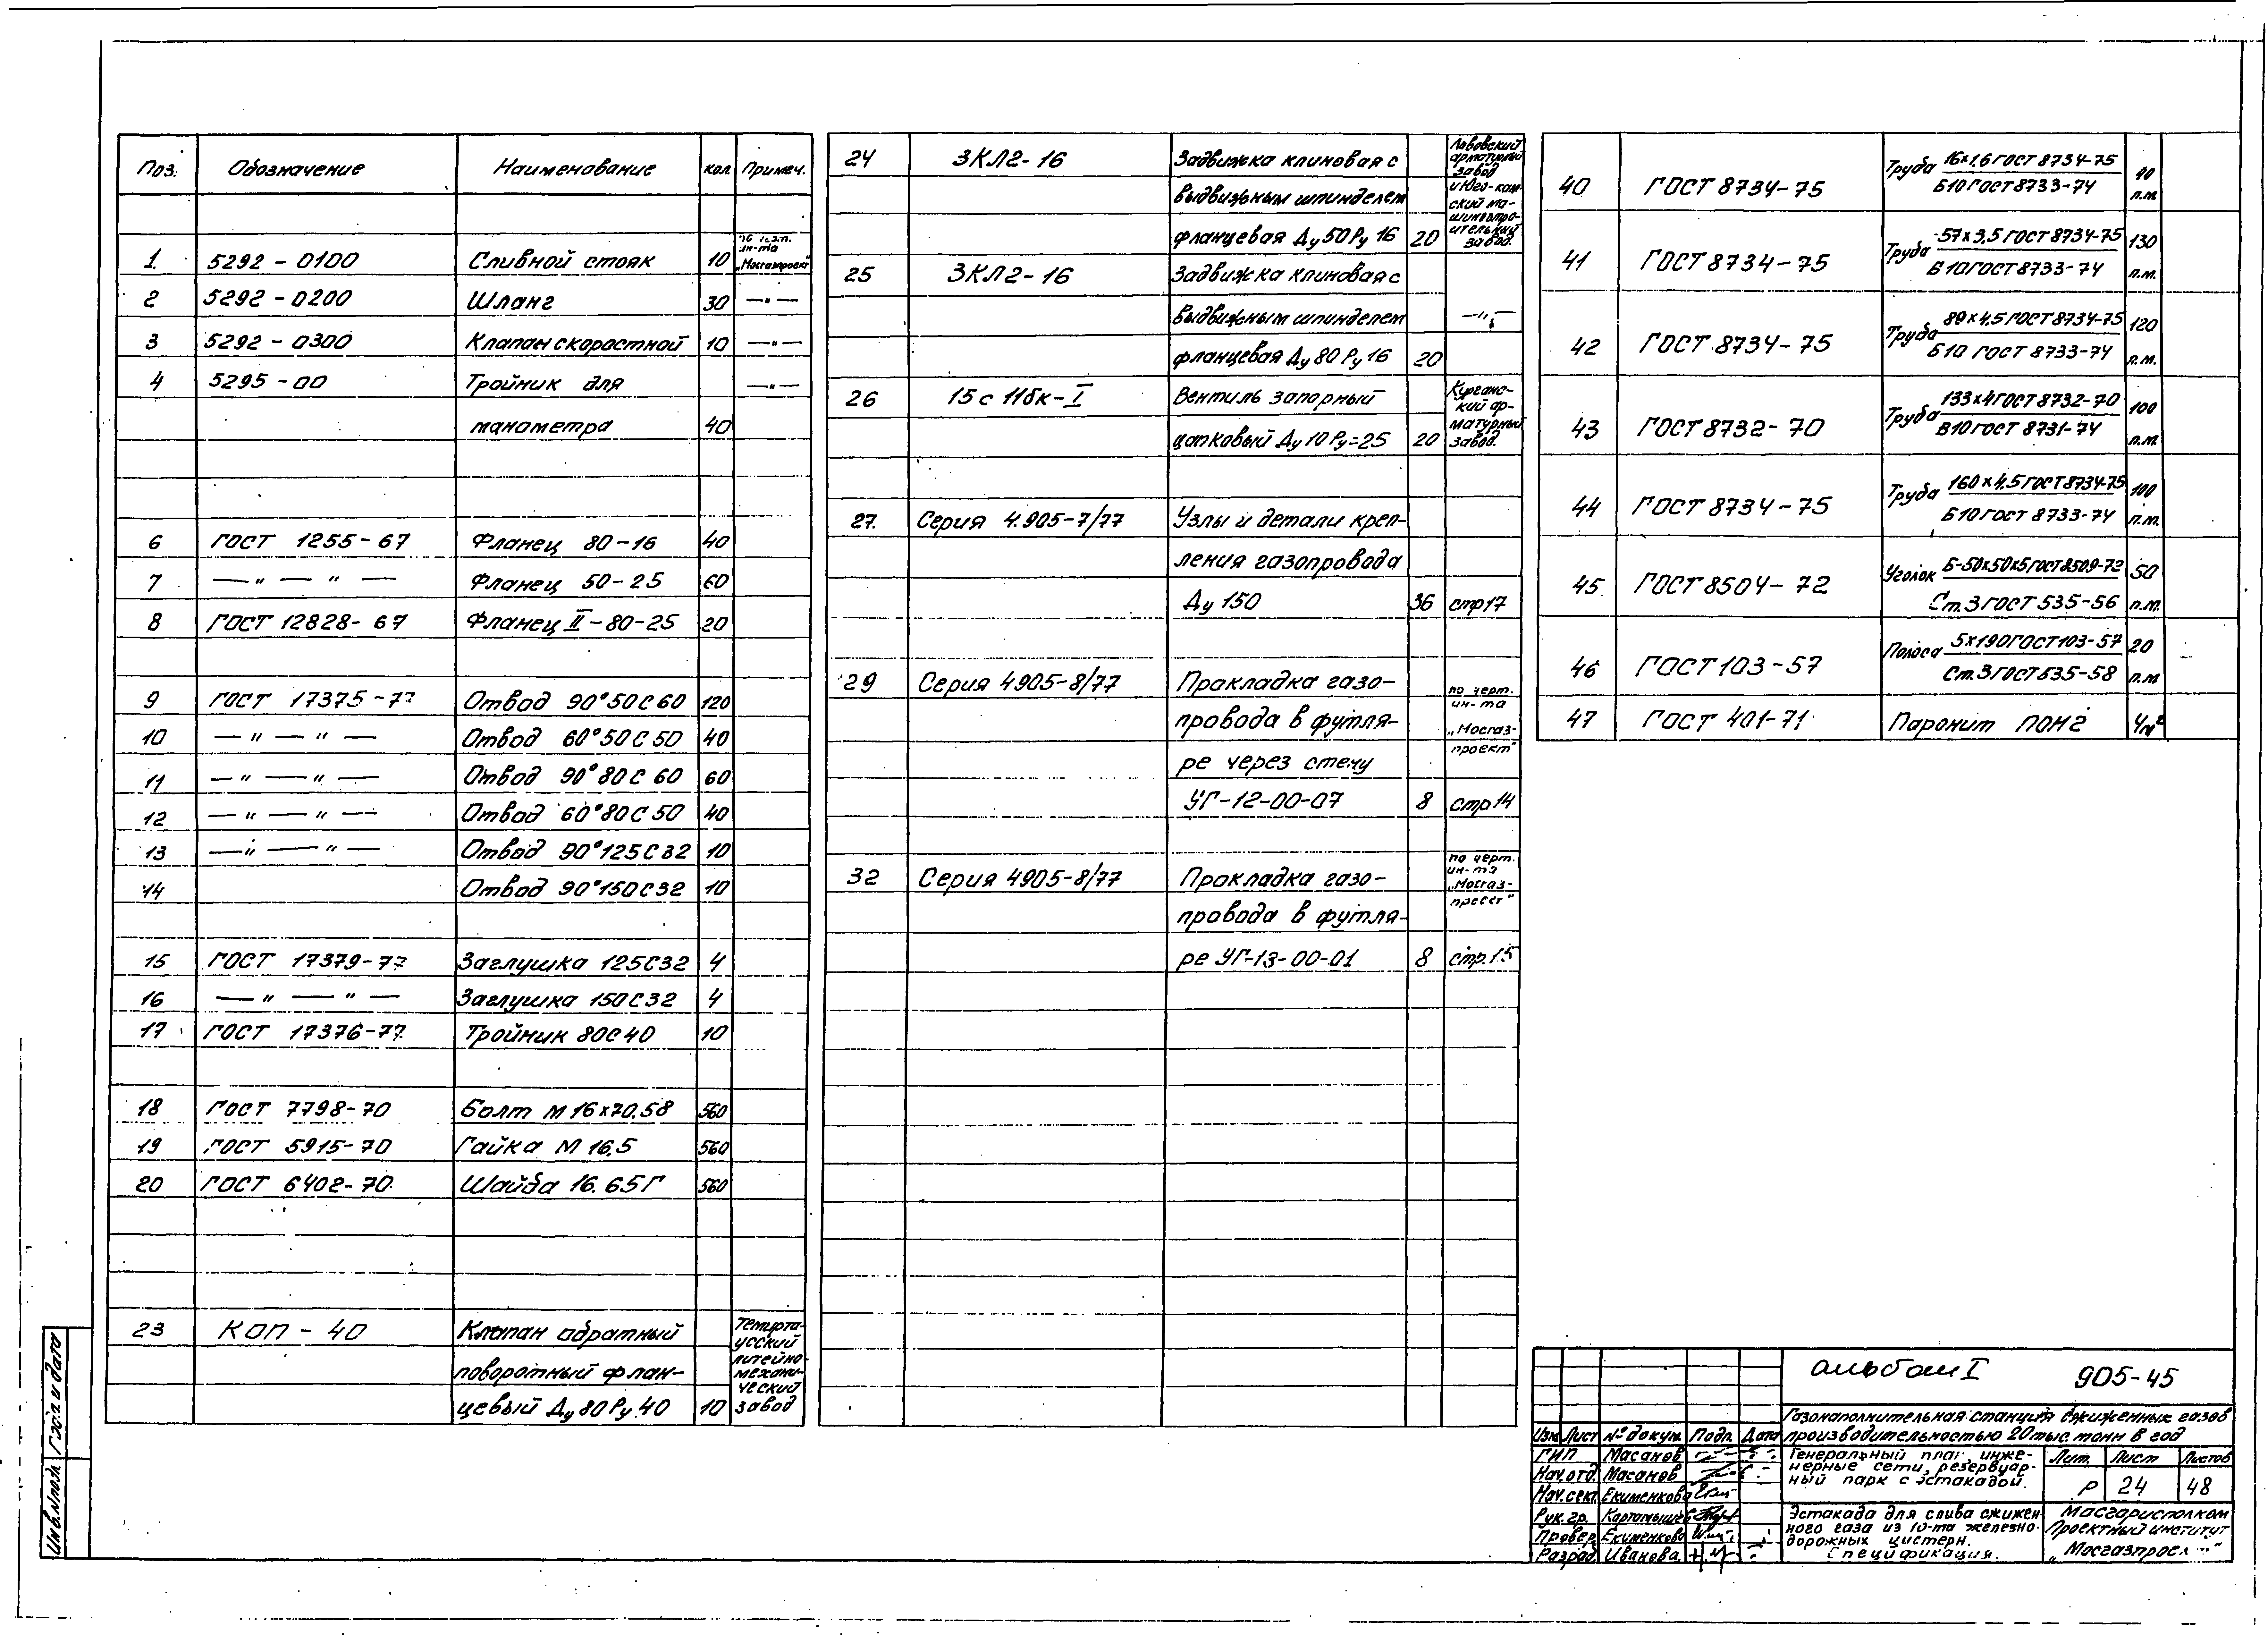 Поз. Обозначение Наименование кол. Примеч.
ин-та
1 5292-0100 Сливной стояк 10 „Мосгазпроект"
2 5292-0200 Шланг 30 —"—
3 5292-0300 Клапан скоростной 10 —"—
4 5295-00 Тройник для —"—
манометра 40
6 ГОСТ 1255-67 Фланец 80-16 40
7 —"—"— Фланец 50-25 60
8 ГОСТ 12828-67 Фланец II-80-25 20
9 ГОСТ 17375-77 Отвод 90°50С60 120
10 —"—"— Отвод 60°50С50 40
11 —"—"— Отвод 90°80С60 60
12 —"—"— Отвод 60°80С50 40
13 —"—"— Отвод 90°125С32 10
14 Отвод 90°150С32 10
15 ГОСТ 17379-77 Заглушка 125С32 4
16 —"—"— Заглушка 150С32 4
17 ГОСТ 17376-77 Тройник 80С40 10
18 ГОСТ 7798-70 Болт М16х70.58 560
19 ГОСТ 5915-70 Гайка М16.5 560
20 ГОСТ 6402-70 Шайба 16.65Г 560
23 КОП-40 Клапан обратный
поворотный флан-
цевый Ду80Ру40 10
Темирта-
усский
литейно-
механи-
ческий
завод
24 ЗКЛ2-16 Задвижка клиновая с
выдвижным шпинделем
фланцевая Ду50Ру16 20
Львовский
арматурный
завод
и Юго-кам-
ский ма-
шиностро-
ительный
завод.
25 ЗКЛ2-16 Задвижка клиновая с
выдвижным шпинделем —"—
фланцевая Ду80Ру16 20
26 15с11бк-I Вентиль запорный
цапковый Ду10Ру=25 20
Курганс-
кий ар-
матурный
завод.
27. Серия 4.905-7/77 Узлы и детали креп-
ления газопровода
Ду150 36 стр17
29 Серия 4905-8/77 Прокладка газо-
провода в футля-
ре через стену
УГ-12-00-07 8 стр14
по черт.
ин-та
„Мосгаз-
проект"
32 Серия 4905-8/77 Прокладка газо-
провода в футля-
ре УГ-13-00-01 8 стр.15
по черт.
ин-та
„Мосгаз-
проект"
40 ГОСТ 8734-75 Труба 16х1,6 ГОСТ 8734-75 10
Б10 ГОСТ 8733-74 п.м.
41 ГОСТ 8734-75 Труба 57х3,5 ГОСТ 8734-75 130
В10 ГОСТ 8733-74 п.м.
42 ГОСТ 8734-75 Труба 89х4,5 ГОСТ 8734-75 120
Б10 ГОСТ 8733-74 п.м.
43 ГОСТ 8732-70 Труба 133х4 ГОСТ 8732-70 100
В10 ГОСТ 8731-74 п.м.
44 ГОСТ 8734-75 Труба 160х4,5 ГОСТ 8734-75 100
Б10 ГОСТ 8733-74 п.м.
45 ГОСТ 8504-72 Уголок Б-50х50х5 ГОСТ 8509-72 50
Ст.3 ГОСТ 535-56 п.м.
46 ГОСТ 103-57 Полоса 5х190 ГОСТ 103-57 20
Ст.3 ГОСТ 535-58 п.м
47 ГОСТ 401-71 Паронит ПОН2 4м²
альбом I 905-45
Газонаполнительная станция сжиженных газов
производительностью 20 тыс. тонн в год
Изм Лист № докум. Подп. Дата
ГИП Масанов
Нач.отд. Масанов
Нач.сект. Екименкова
Рук.гр. Картамышев
Провер. Екименкова
Разраб. Иванова.
Генеральный план, инже-
нерные сети, резервуар-
ный парк с эстакадой.
Лит. Лист Листов
Р 24 48
Эстакада для слива сжижен-
ного газа из 10-ти железно-
дорожных цистерн.
Спецификация.
Мосгорисполком
Проектный институт
„Мосгазпроект"
Инв.№подл. Подп. и дата